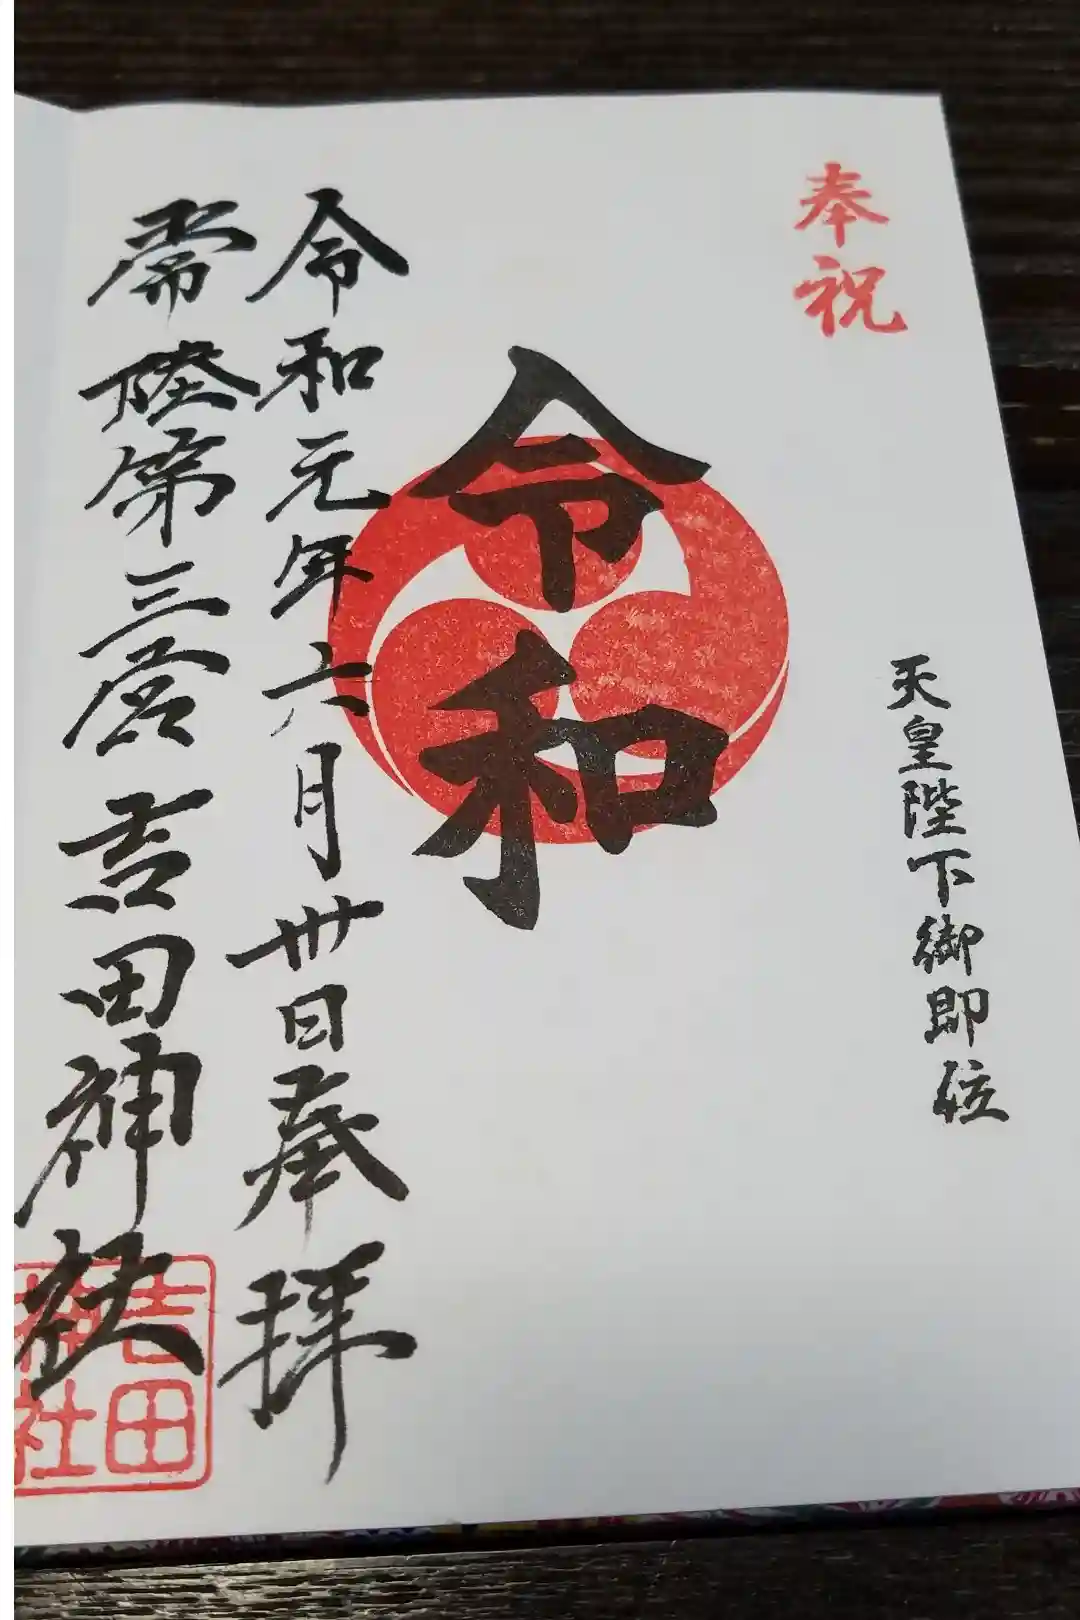 奉祝
天皇陛下御即位
令和
令和元年六月卅日奉拝
常陸第三宮吉田神社
吉田神社